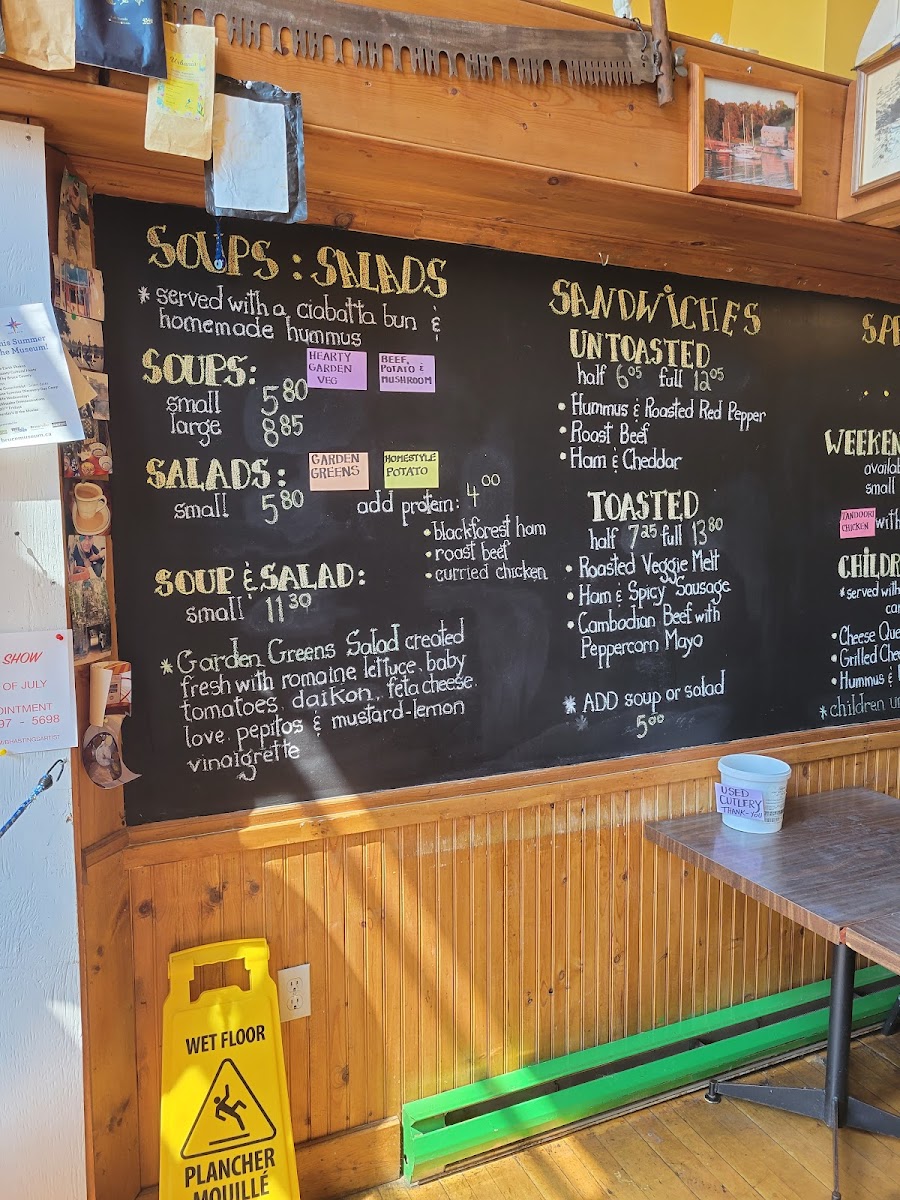 SOUPS : SALADS
* served with a ciabatta bun &
homemade hummus
SOUPS:
HEARTY
GARDEN
VEG
BEEF,
POTATO &
MUSHROOM
small 5.80
large 8.85
SALADS:
GARDEN
GREENS
HOMESTYLE
POTATO
small 5.80
add protein: 4.00
• blackforest ham
• roast beef
• curried chicken
SOUP & SALAD:
small 11.30
* Garden Greens Salad created
fresh with romaine lettuce, baby
tomatoes, daikon, feta cheese,
love, pepitos & mustard-lemon
vinaigrette
SANDWICHES
UNTOASTED
half 6.05 full 12.05
• Hummus & Roasted Red Pepper
• Roast Beef
• Ham & Cheddar
TOASTED
half 7.25 full 13.80
• Roasted Veggie Melt
• Ham & Spicy Sausage
• Cambodian Beef with
Peppercorn Mayo
* ADD soup or salad
5.00
SP
WEEKEN
availab
small
TANDOORI
CHICKEN
with
CHILDR
*served with
• Cheese Que
• Grilled Che
• Hummus &
*children un
his Summer
the Museum!
SHOW
OF JULY
OINTMENT
97 - 5698
USED
CUTLERY
THANK-YOU
WET FLOOR
PLANCHER
MOUILLÉ